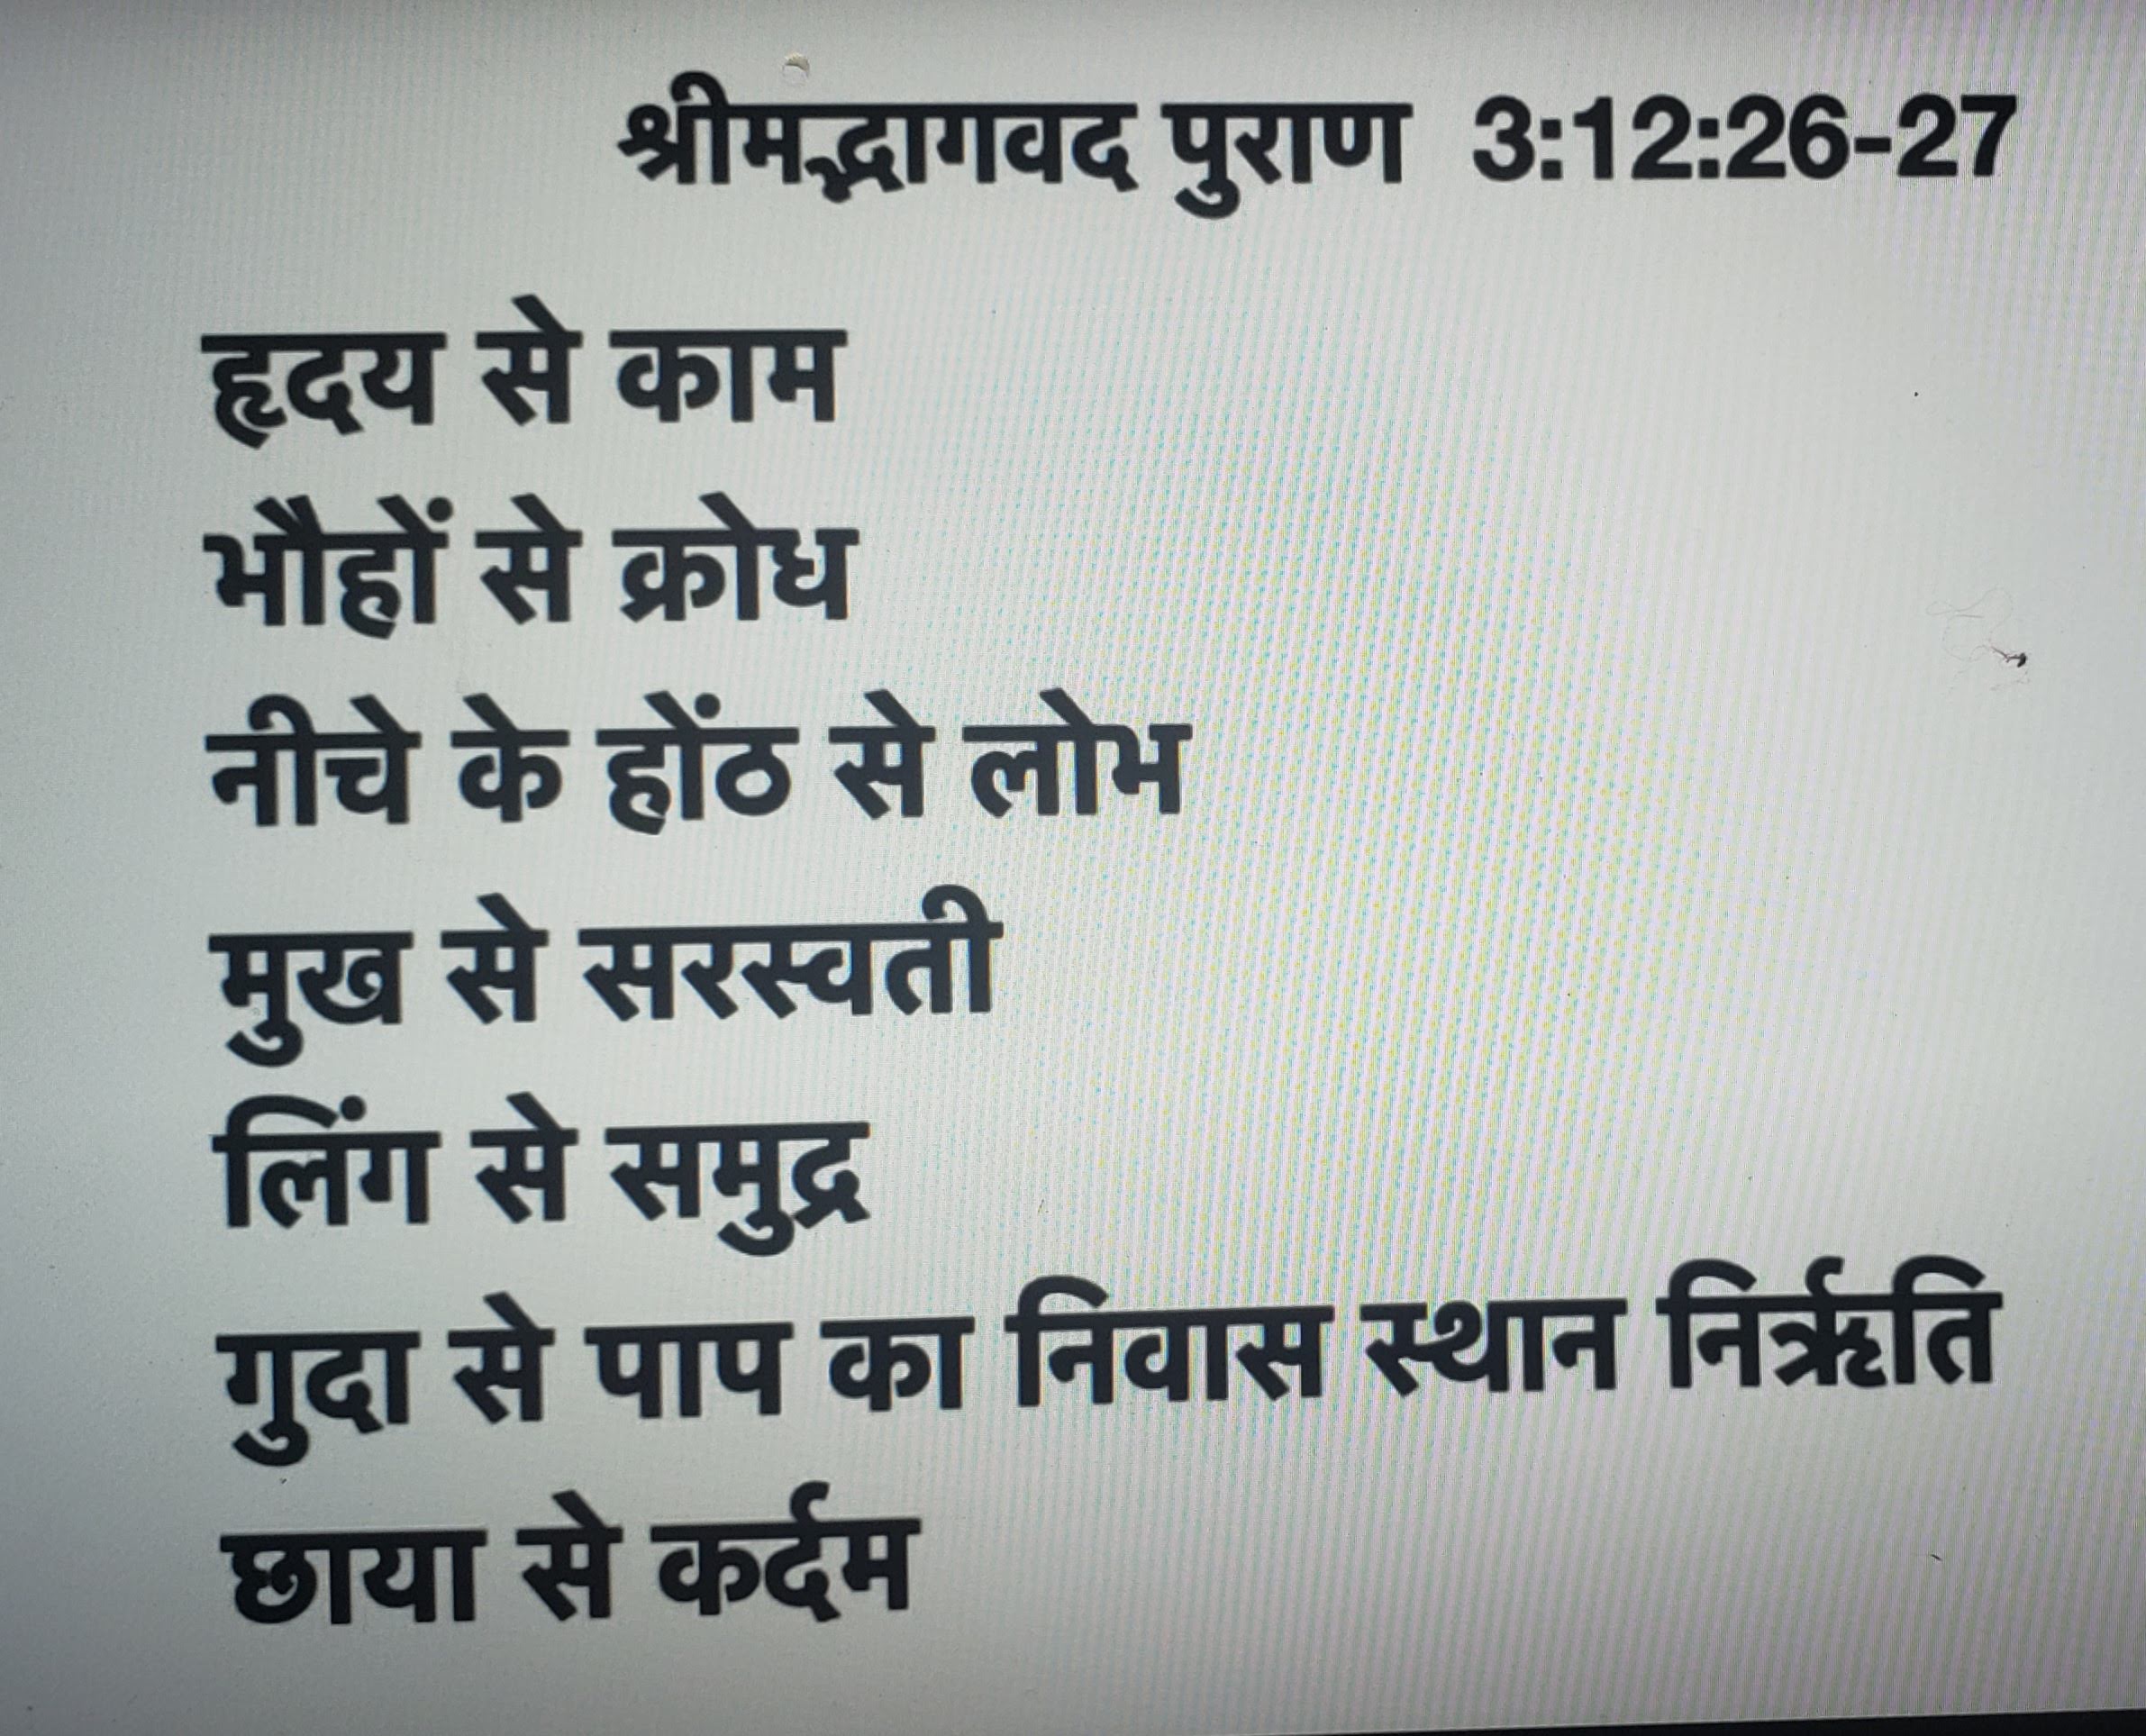 श्रीमद्भागवद पुराण 3:12:26-27
हृदय से काम
भौहों से क्रोध
नीचे के होंठ से लोभ
मुख से सरस्वती
लिंग से समुद्र
गुदा से पाप का निवास स्थान निर्ऋति
छाया से कर्दम